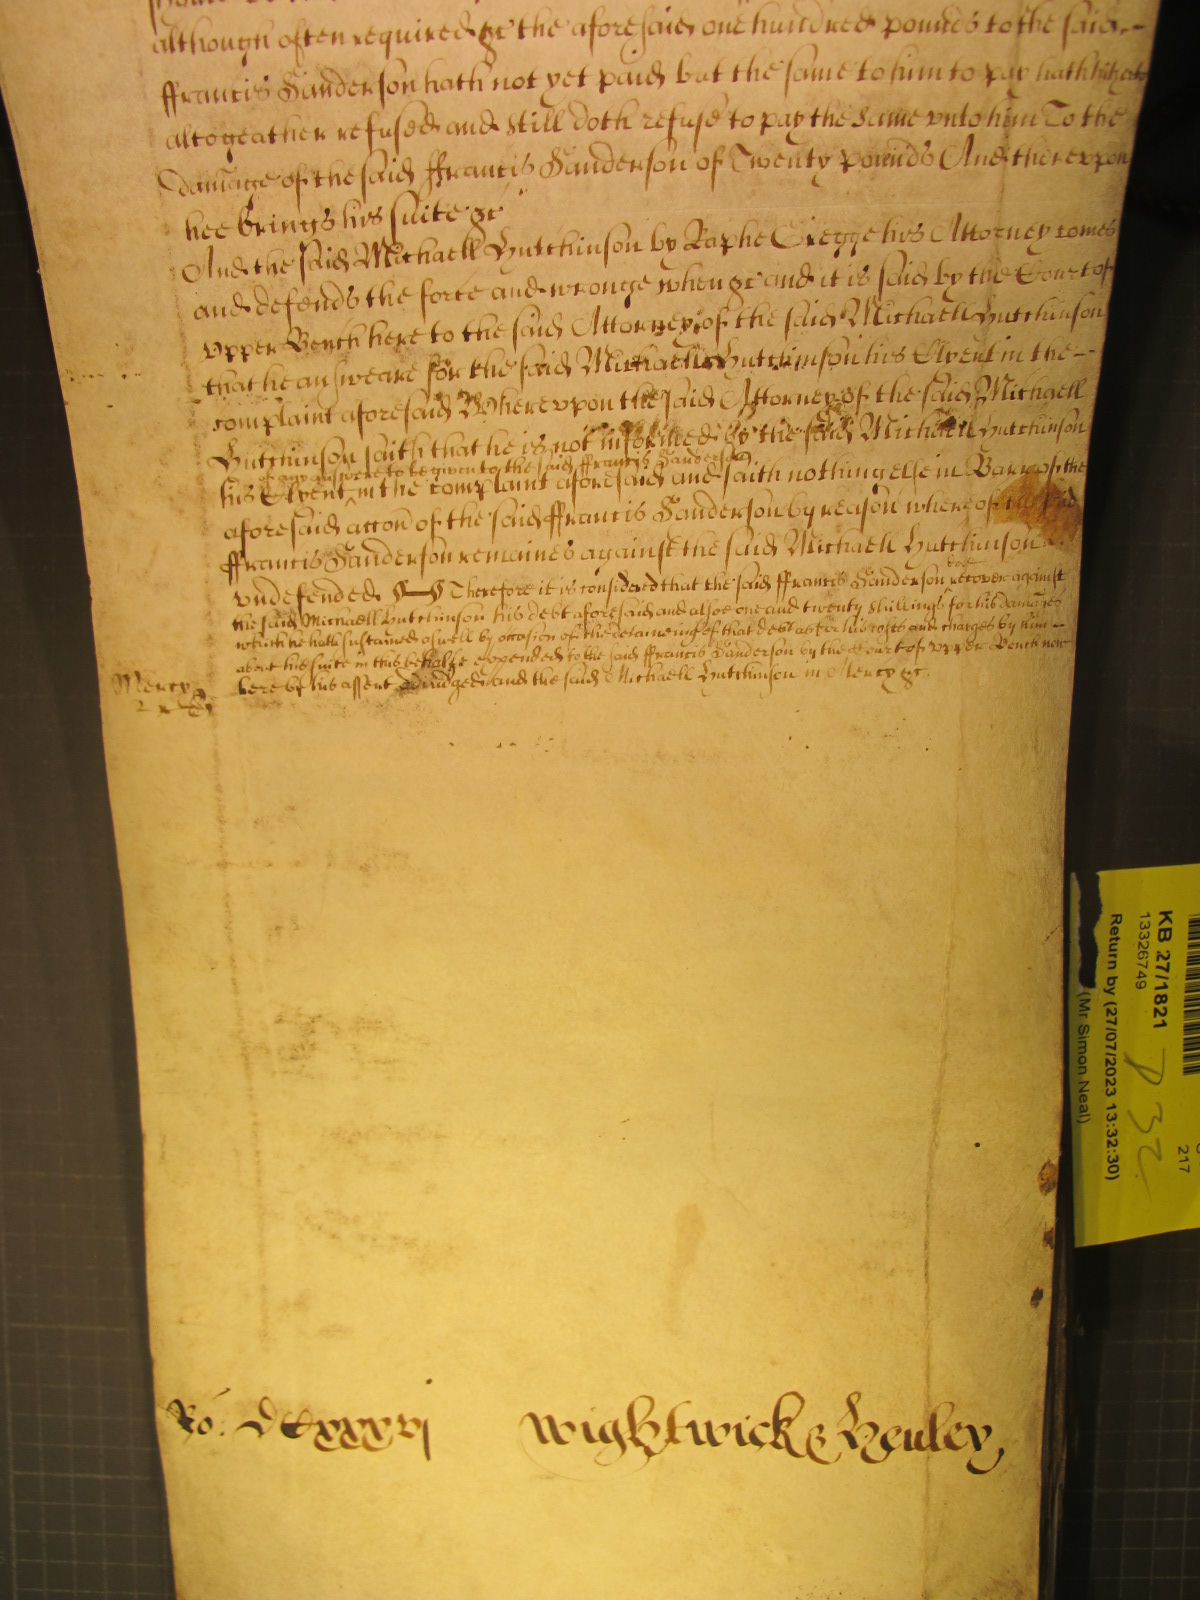 although often required &c the aforesaid one hundred pounds to the said
ffrancis Sanderson hath not yet paid but the same to him to pay hath hitherto
altogeather refused and still doth refuse to pay the same vnto him To the
damage of the said ffrancis Sanderson of Twenty pounds And therevpon
hee brings his suite &c
And the said Michaell Hutchinson by Raphe Gregge his Attorney comes
and defends the force and wronge when &c and it is said by the Court of
vpper Bench here to the said Attorney of the said Michaell Hutchinson
that he answeare for the said Michaell Hutchinson his Clyent in the
complaint aforesaid Wherevpon the said Attorney of the said Michaell
Hutchinson saith that he is not informed by the said Michaell Hutchinson
of any answere to be given to the said ffrancis Sanderson
his Clyent in the complaint aforesaid and saith nothing else in Barr of the
aforesaid accon of the said ffrancis Sanderson by reason whereof the said
ffrancis Sanderson remaines against the said Michaell Hutchinson
vndefended Therefore it is considered that the said ffrancis Sanderson doe recover against
the said Michaell Hutchinson his debt aforesaid and alsoe one and twenty shillings for his damages
which he hath sustained aswell by occasion of the detaineing of that debt as for his costs and charges by him
about his suite in this behalfe expended to the said ffrancis Sanderson by the Court of vpper Bench now
here by his assent adiudged and the said Michaell Hutchinson in Mercy &c
Mercy
Ro. DCxxxvj Wightwick & Henley
KB 27/1821
13326749
Return by (27/07/2023 13:32:30)
(Mr Simon Neal)
217